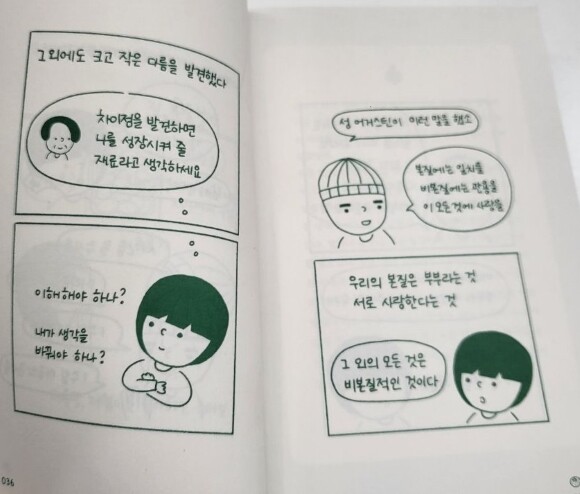 그 외에도 크고 작은 다름을 발견했다
차이점을 발견하면
나를 성장시켜 줄
재료라고 생각하세요
이해해야 하나?
내가 생각을
바꿔야 하나?
036
성 어거스틴이 이런 말을 했소
본질에는 일치를
비본질에는 관용을
이 모든 것에 사랑을
우리의 본질은 부부라는 것
서로 사랑한다는 것
그 외의 모든 것은
비본질적인 것이다